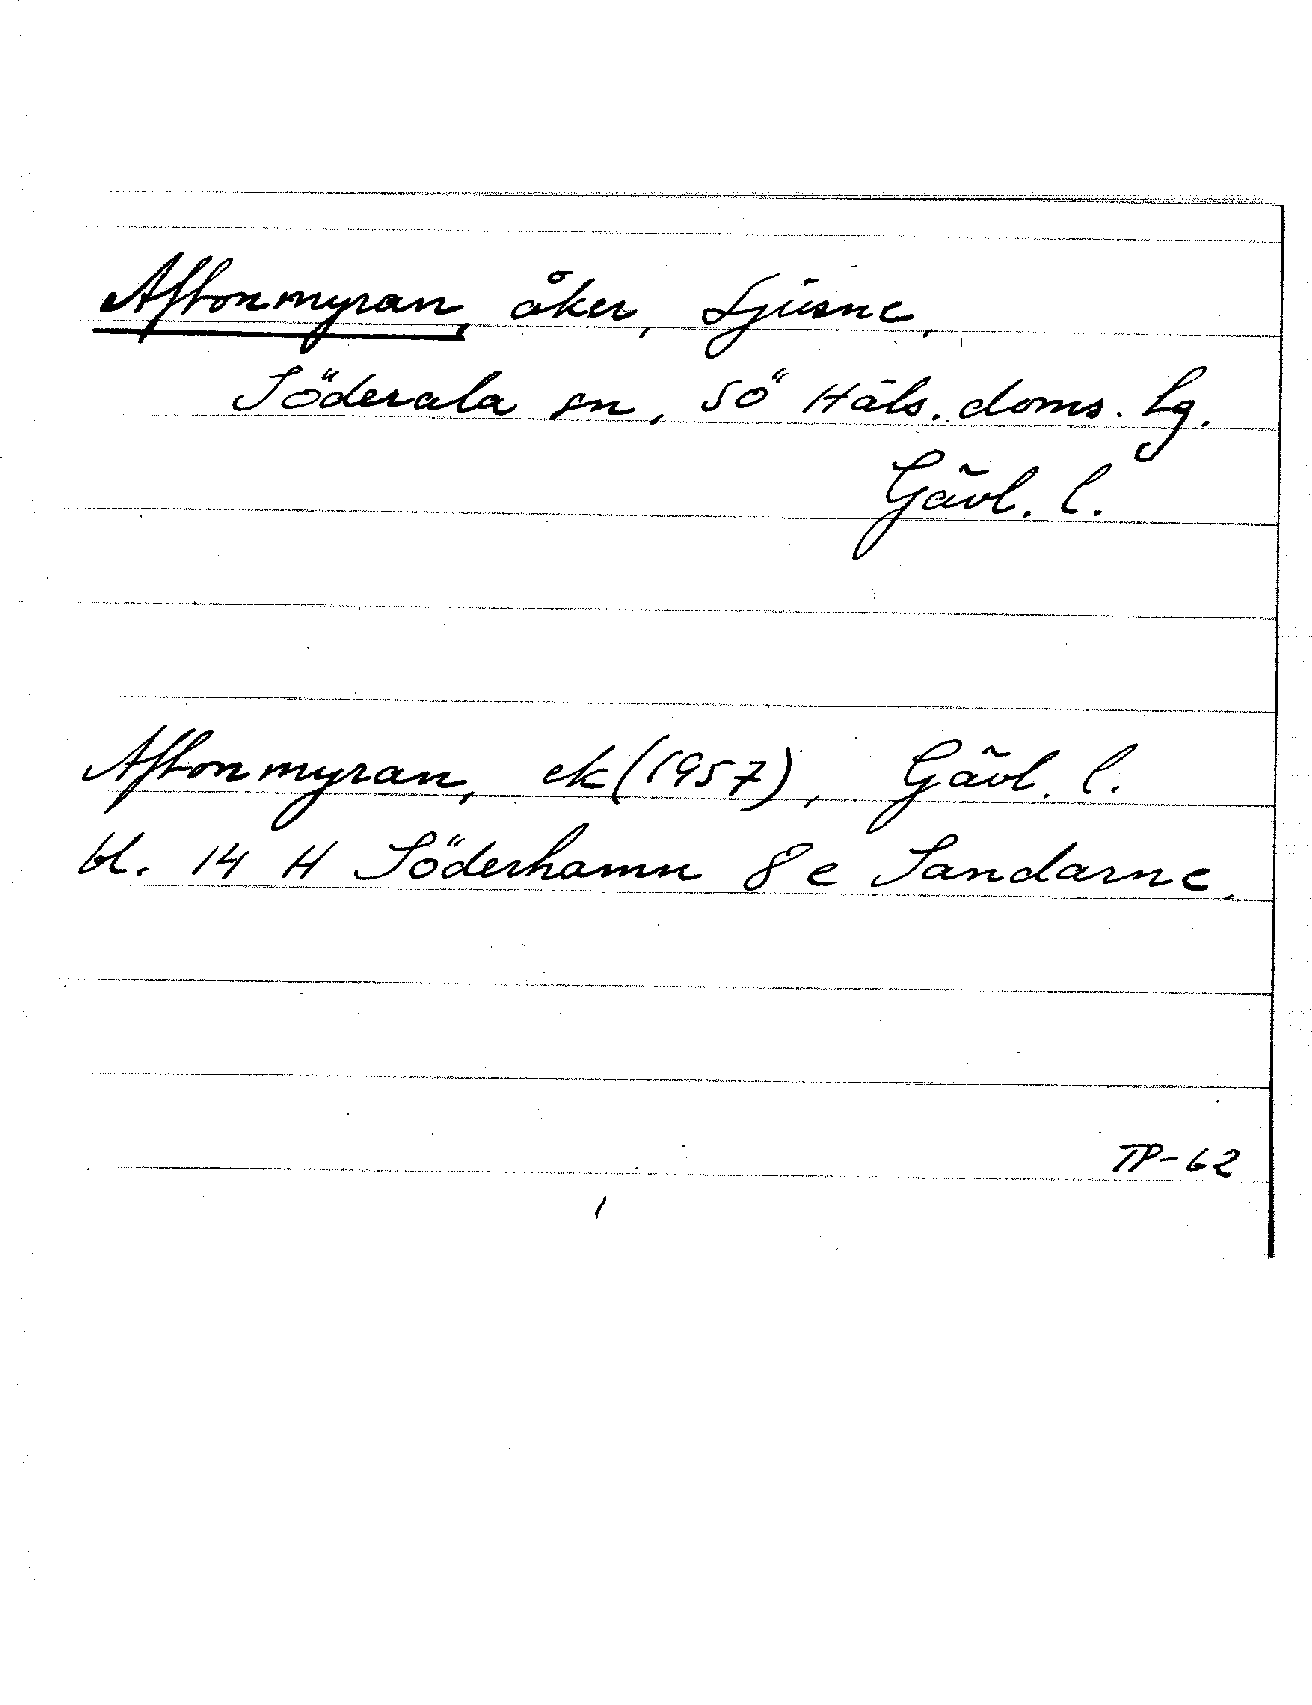 Aftonmyran, åker, Ljusne,
Söderala sn, Sö Häls. doms. lg.
Gävl. l.
Aftonmyran, ek (1957), Gävl. l.
bl. 14 H Söderhamn 8 e Sandarne.
TP-62